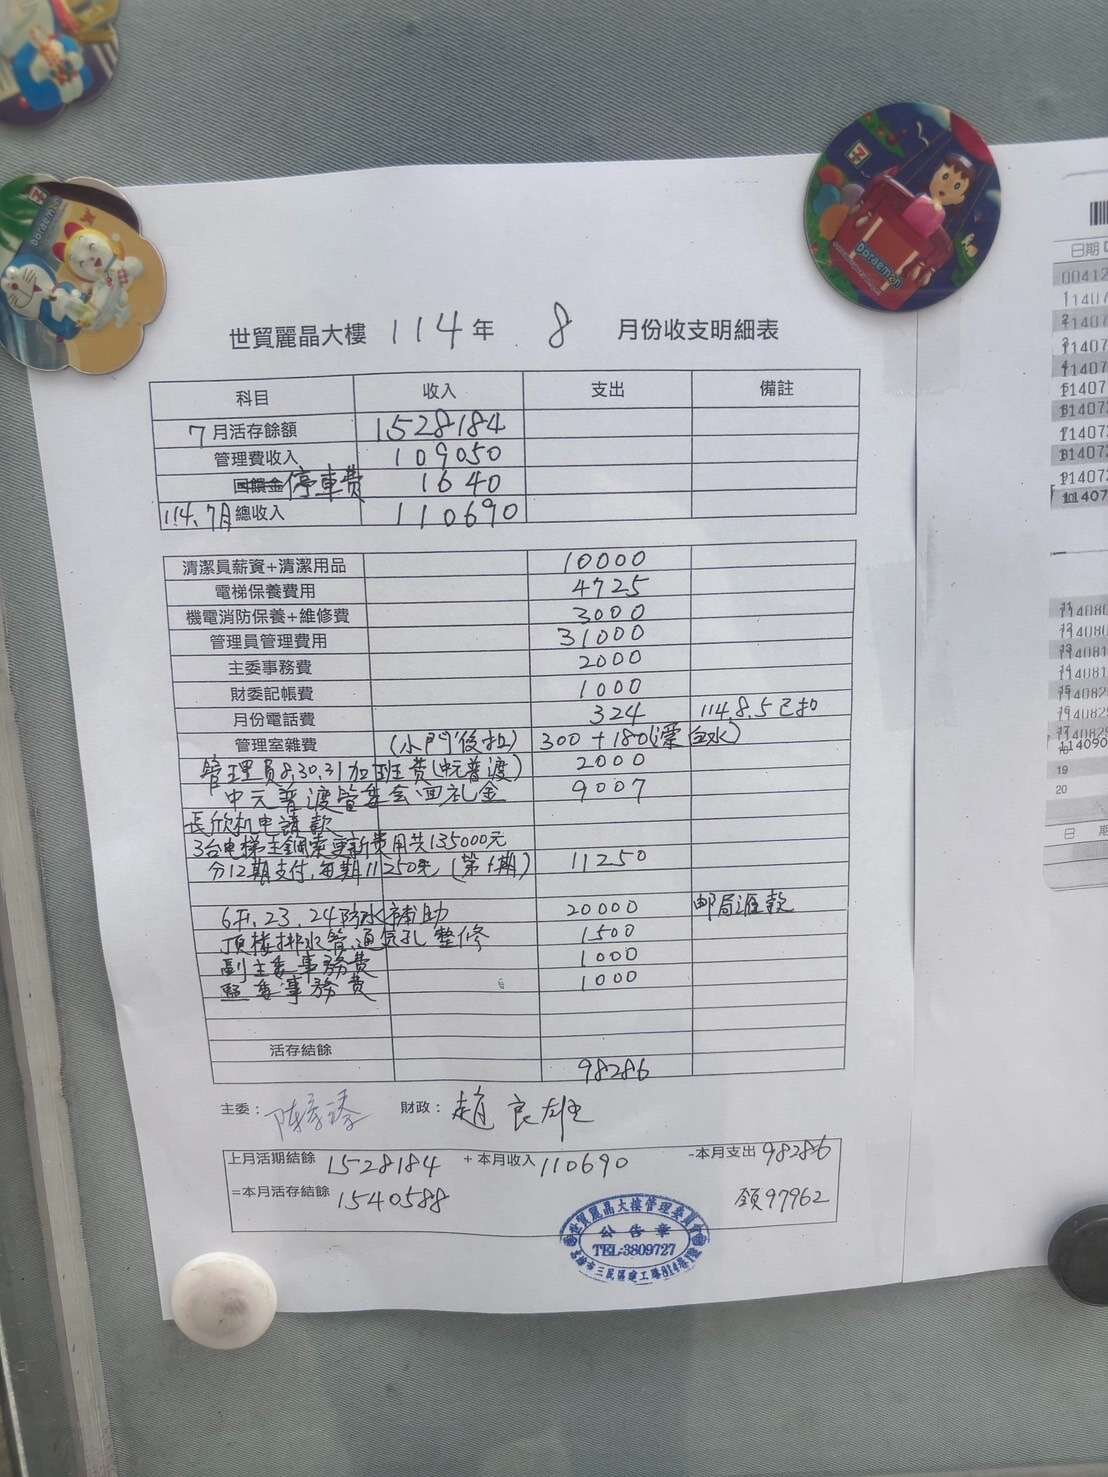 世貿麗晶大樓 114年 8 月份收支明細表
科目 收入 支出 備註
7月活存餘額 1528184
管理費收入 109050
回饋金 停車費 1640
114.7月總收入 110690
清潔員薪資+清潔用品 10000
電梯保養費用 4725
機電消防保養+維修費 3000
管理員管理費用 31000
主委事務費 2000
財委記帳費 1000
月份電話費 324 114.8.5已扣
管理室雜費 (小門後扣) 300+180(漂白水)
管理員8,30.31加班費(中元普渡) 2000
中元普渡管委会回礼金 9007
長欣机电請款
3台电梯主鋼索更新費用共135000元
分12期支付,每期11250元(第1期) 11250
6F1.23.24防水補助 20000 邮局匯款
頂樓排水管,通氣孔整修 1500
副主委事務費 1000
監委事務費 1000
活存結餘
98286
主委: 財政: 趙良雄
上月活期結餘 1528184 +本月收入110690 -本月支出98286
=本月活存結餘 1540588 領97962
世貿麗晶大樓管理委員會
公告章
TEL:3809727
高雄市三民區建工路
Doraemon
Doraemon
日期
00412
11407
11407
11407
11407
11407
11407
11407
11407
11407
11407
11408
11408
11408
11408
11408
11408
11408
114090
19
20
日 期